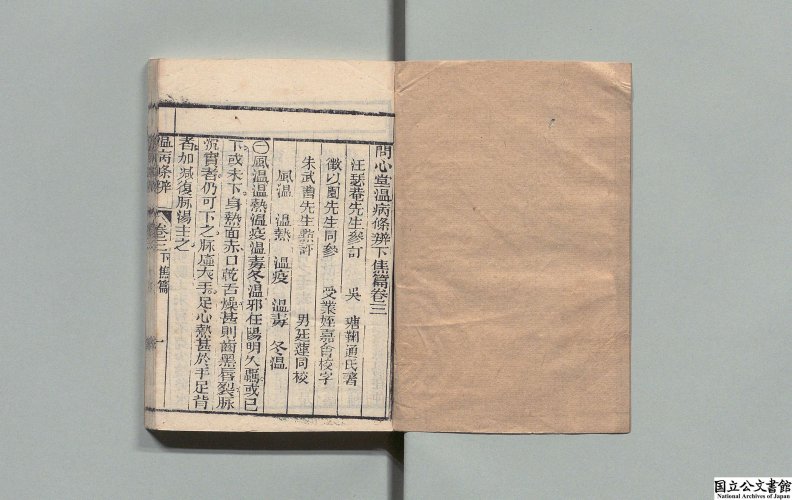 問心堂溫病條辨下焦篇卷三
汪瑟菴先生參訂 吳 瑭鞠通氏著
徵以園先生同參 受業姪嘉會校字
朱武曹先生點評 男廷蓮同校
風溫 溫熱 溫疫 溫毒 冬溫
㊀風溫溫熱溫疫溫毒冬溫邪在陽明久羈或已
下或未下身熱面赤口乾舌燥甚則齒黑唇裂脈
沉實者仍可下之脈虛大手足心熱甚於手足背
者加減復脈湯主之
溫病條辨 卷三下焦篇 一
国立公文書館
National Archives of Japan